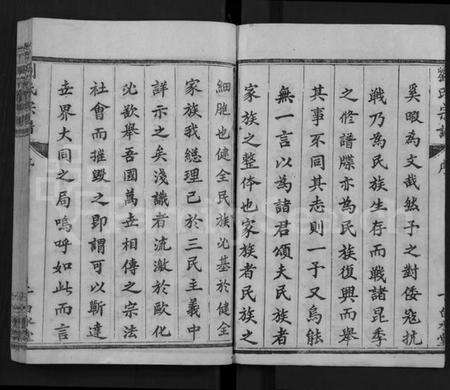 劉氏宗譜 序
奚暇為文哉然予之對倭寇抗
戰乃為民族生存而戰諸昆季
之修譜牒亦為民族復興而舉
其事不同其志則一予又烏能
無一言以為諸君頌夫民族者
家族之整体也家族者民族之
細胞也健全民族必基於健全
家族我總理已於三民主義中
詳示之矣淺識者流激於歐化
必欲舉吾國萬世相傳之宗法
社會而摧毀之即謂可以漸達
世界大同之局嗚呼如此而言